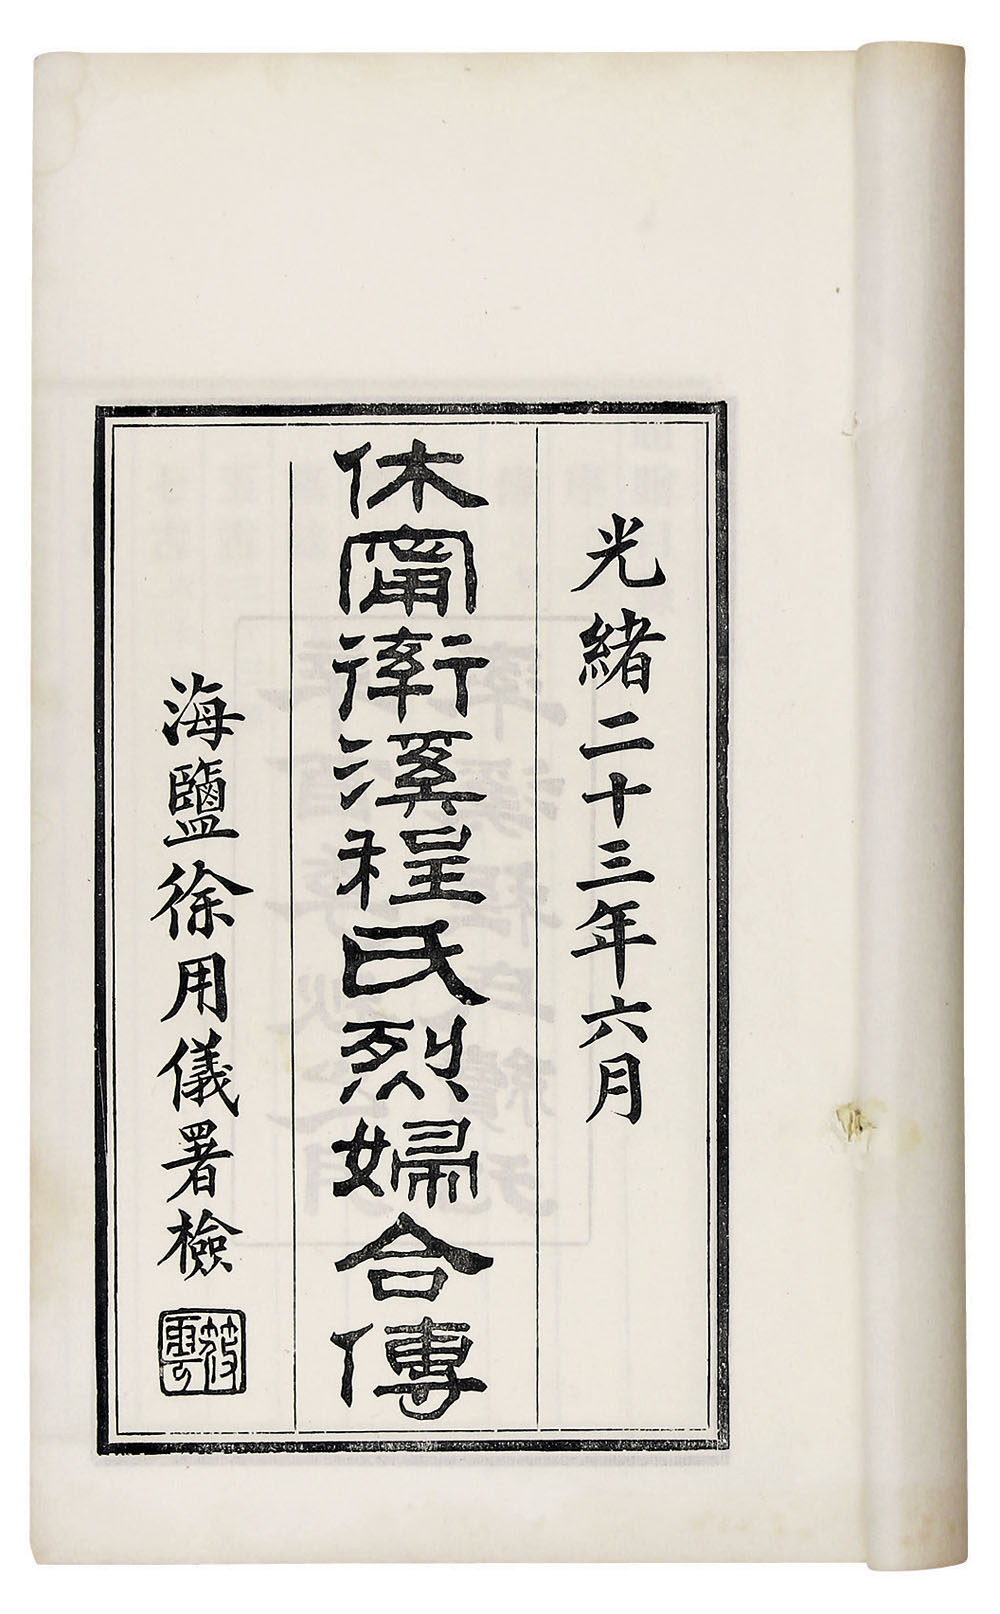 光緒二十三年六月
休甯𧗿溪程氏烈婦合傳
海鹽徐用儀署檢
筱雲